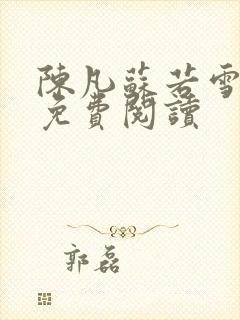 陳凡蘇若雪
免費閱讀
郭磊